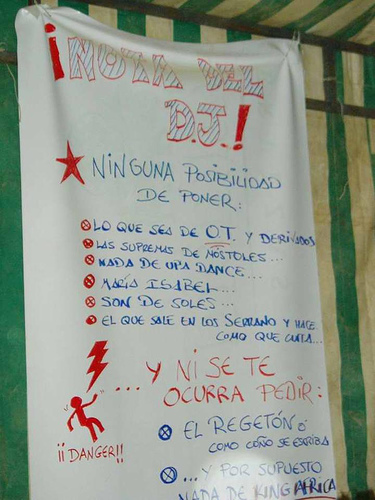 ¡NOTA DEL
D.J.!
NINGUNA POSIBILIDAD
DE PONER:
LO QUE SEA DE OT. Y DERIVADOS
LAS SUPREMAS DE MÓSTOLES...
NADA DE UPA DANCE....
MARÍA ISABEL...
SON DE SOLES...
EL QUE SALE EN LOS SERRANO Y HACE
COMO QUE CANTA...
... Y NI SE TE
OCURRA PEDIR:
EL REGETÓN Ó
COMO COÑO SE ESCRIBA
¡¡DANGER!!
... Y POR SUPUESTO
NADA DE KING AFRICA